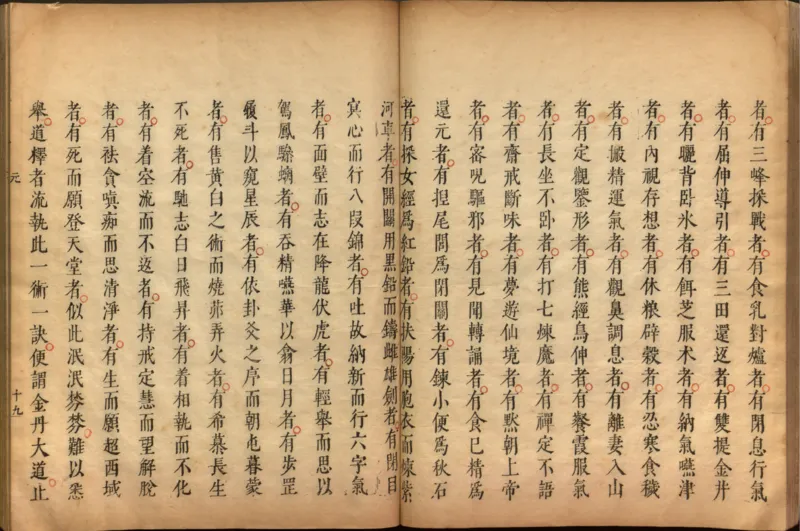 者有三峰採戰者有食乳對爐者有閉息行氣
者有屈伸導引者有三田還返者有雙提金井
者有曬背臥氷者有餌芝服术者有納氣嚥津
者有內視存想者有休粮辟穀者有忍寒食穢
者有搬精運氣者有觀鼻調息者有離妻入山
者有定觀鑒形者有熊經鳥伸者有餐霞服氣
者有長坐不卧者有打七煉魔者有禪定不語
者有齋戒斷味者有夢遊仙境者有黙朝上帝
者有密呪驅邪者有見聞轉誦者有食已精爲
還元者有捏尾閭爲閉關者有鍊小便爲秋石
者有採女經爲紅鉛者有扶陽用胞衣而煉紫
河車者有開關用黑鉛而鑄雌雄劍者有閉目
冥心而行八段錦者有吐故納新而行六字氣
者有面壁而志在降龍伏虎者有輕舉而思以
駕鳳驂螭者有吞精嚥華以翕日月者有步罡
履斗以窺星辰者有依卦爻之序而朝屯暮蒙
者有售黄白之術而燒茆弄火者有希慕長生
不死者有馳志白日飛昇者有着相執而不化
者有着空流而不返者有持戒定慧而望解脫
者有袪貪嗔痴而思清淨者有生而願超西域
者有死而願登天堂者似此泯泯棼棼難以悉
舉道釋者流執此一術一訣便謂金丹大道止
元
十九